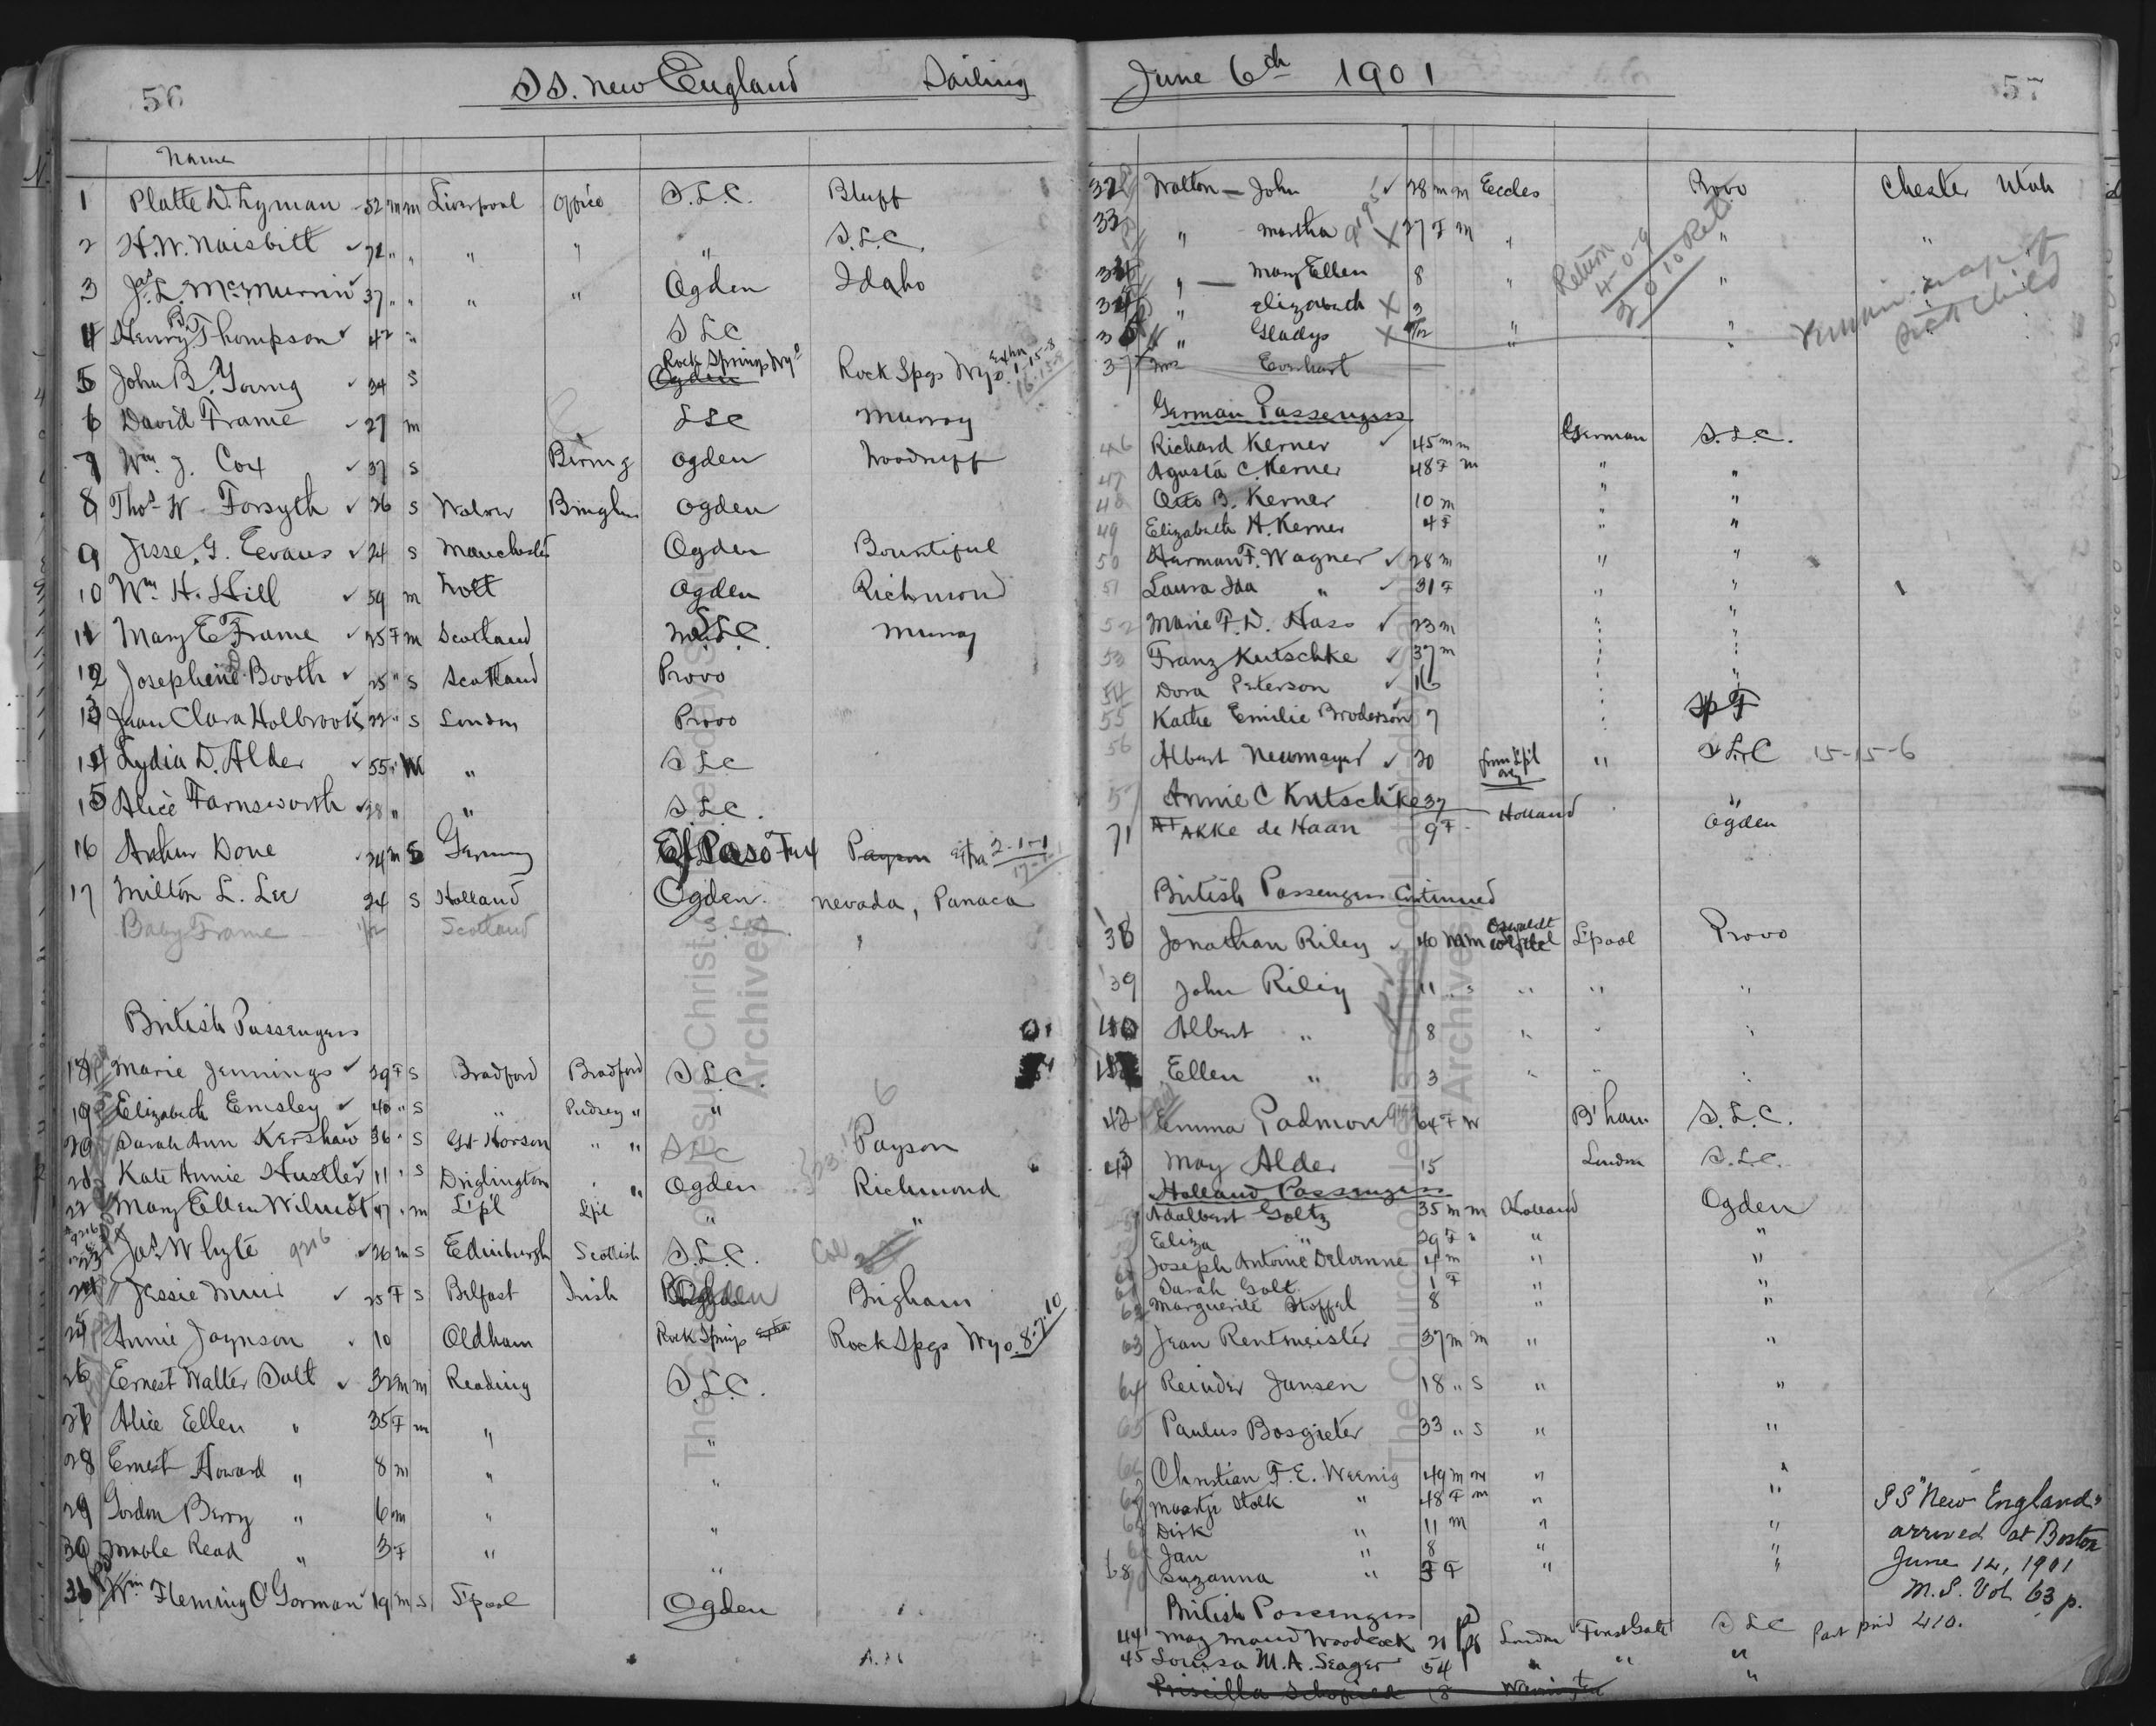 56 SS. New England Sailing
Name
1 Platte D. Lyman 52 m m Liverpool Office S.L.C. Bluff
2 H. W. Naisbitt 72 " " " " " S.L.C.
3 Jas. L. McMurrin 37 " " " " Ogden Idaho
4 Henry B. Thompson 42 " S L C
5 John B. Young 34 S Rock Springs Wyo Ogden Rock Spgs Wyo. Extra 1-15-8
6 David Frame 27 m S L C Murray
7 Wm. J. Cox 37 S Birm g Ogden Woodruff
8 Thos. W. Forsyth 26 S Bingham Ogden
9 Jesse. G. Eevans 24 S Manchester Ogden Bountiful
10 Wm. H. Hill 59 m Nott Ogden Richmond
11 Mary E Frame 25 F m Scotland S.L.C. Murray
12 Josephine Booth 25 " S Scotland Provo
13 Jean Clara Holbrook 22 " S London Provo
14 Lydia D. Alder 55 " W " S L C
15 Alice Farnsworth 28 " " S.L.C.
16 Arthur Done 24 m S Germany El Paso Tex Payson Extra 2-1-1
17 Milton L. Lee 24 S Holland Ogden. Nevada, Panaca
Baby Frame 1/12 Scotland "
British Passengers
18 Marie Jennings 29 F S Bradford Bradford S.L.C.
19 Elizabeth Emsley 40 " S " Pudsey " "
20 Sarah Ann Kershaw 36 " S Gt Horson " " S L C Payson
21 Kate Annie Hustler 11 " S Driglington " " Ogden Richmond
22 Mary Ellen Wilmot 47 " m L'pl L'pl " "
23 Jas. Whyte 9216 26 m S Edinburgh Scottish S.L.C.
24 Jessie Muir 25 F S Belfast Irish Ogden Brigham
25 Annie Joynson 10 Oldham Rock Springs Extra Rock Spgs Wyo. 8-7-10
26 Ernest Walter Salt 32 m m Reading S.L.C.
27 Alice Ellen " 35 F m " "
28 Ernest Howard " 8 m " "
29 Gordon Berry " 6 m " "
30 Mable Read " 3 F " "
31 Wm Fleming O'Gorman 19 m S L'pool Ogden
June 6th 1901 57
32 Walton John 28 m m Eccles Provo Chester Utah
33 " Martha 27 F m " " "
34 " Mary Ellen 8 " "
" Elizabeth X 3
" Gladys X " "
37 Mrs Everhart
Return
4-0-9
Remain
sick child
German Passengers
46 Richard Kerner 45 m m German S.L.C.
47 Agusta C. Kerner 48 F m " "
48 Otto B. Kerner 10 m " "
49 Elizabeth H. Kerner 4 F " "
50 Herman F. Wagner 28 m " "
51 Laura Ida " 31 F " "
52 Marie F. D. Hass 23 m " "
53 Franz Kutschke 37 m " "
54 Dora Peterson 16 " "
55 Kathe Emilie Broderson 7 "
56 Albert Neumayer 20 from L'pl only " S L C 15-15-6
57 Annie C Kutschke 37 "
71 AKKe de Haan 9 F Holland Ogden
British Passengers Continued
38 Jonathan Riley 40 m m L'pool Provo
39 John Riley 11 " " " "
40 Albert " 8 " " "
Ellen " 3 " " "
42 Emma Padmore 64 F W B'ham S.L.C.
43 May Alder 15 London S.L.C.
Holland Passengers
Adalbert Goltz 35 m m Holland Ogden
Eliza " 29 F " " "
Joseph Antoine Delvenne 4 m " "
Sarah Golt 1 F " "
62 Marguerite Stoffel 8 " "
63 Jean Rentmeister 37 m m " "
64 Reinder Jansen 18 " S " "
65 Paulus Bosgieter 33 " S " "
66 Christian F. E. Weenig 49 m m " "
67 Maartje Stolk " 48 F m " "
Dirk " 11 m " "
Jan " 8 " "
Suzanna " 3 F " "
SS "New England"
arrived at Boston
June 14, 1901
M.S. Vol. 63 p.
410.
British Passengers
44 May Maud Woodcock 21 London Forest Gate S L C Part paid
45 Louisa M. A. Seager 54 " " "
Priscilla Schofield 18 Warrington "
The Church of Jesus Christ
Archives